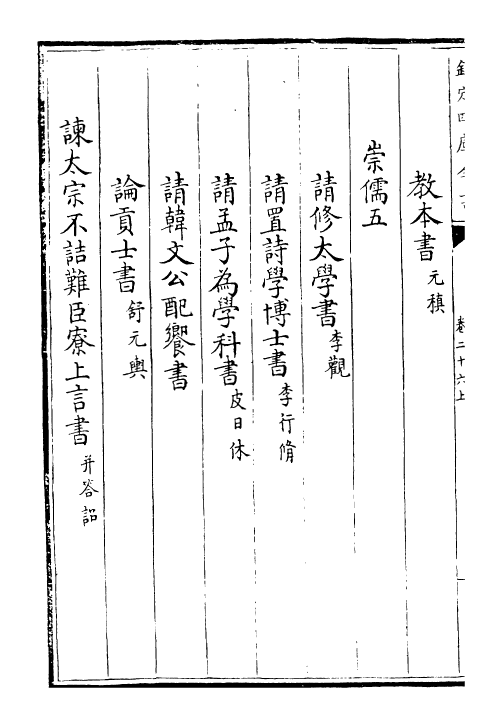 欽定四庫全書
卷二十六上
教本書 元稹
崇儒五
請修太學書 李觀
請置詩學博士書 李行脩
請孟子為學科書 皮日休
請韓文公配饗書
論貢士書 舒元輿
諫太宗不詰難臣寮上言書 并答詔